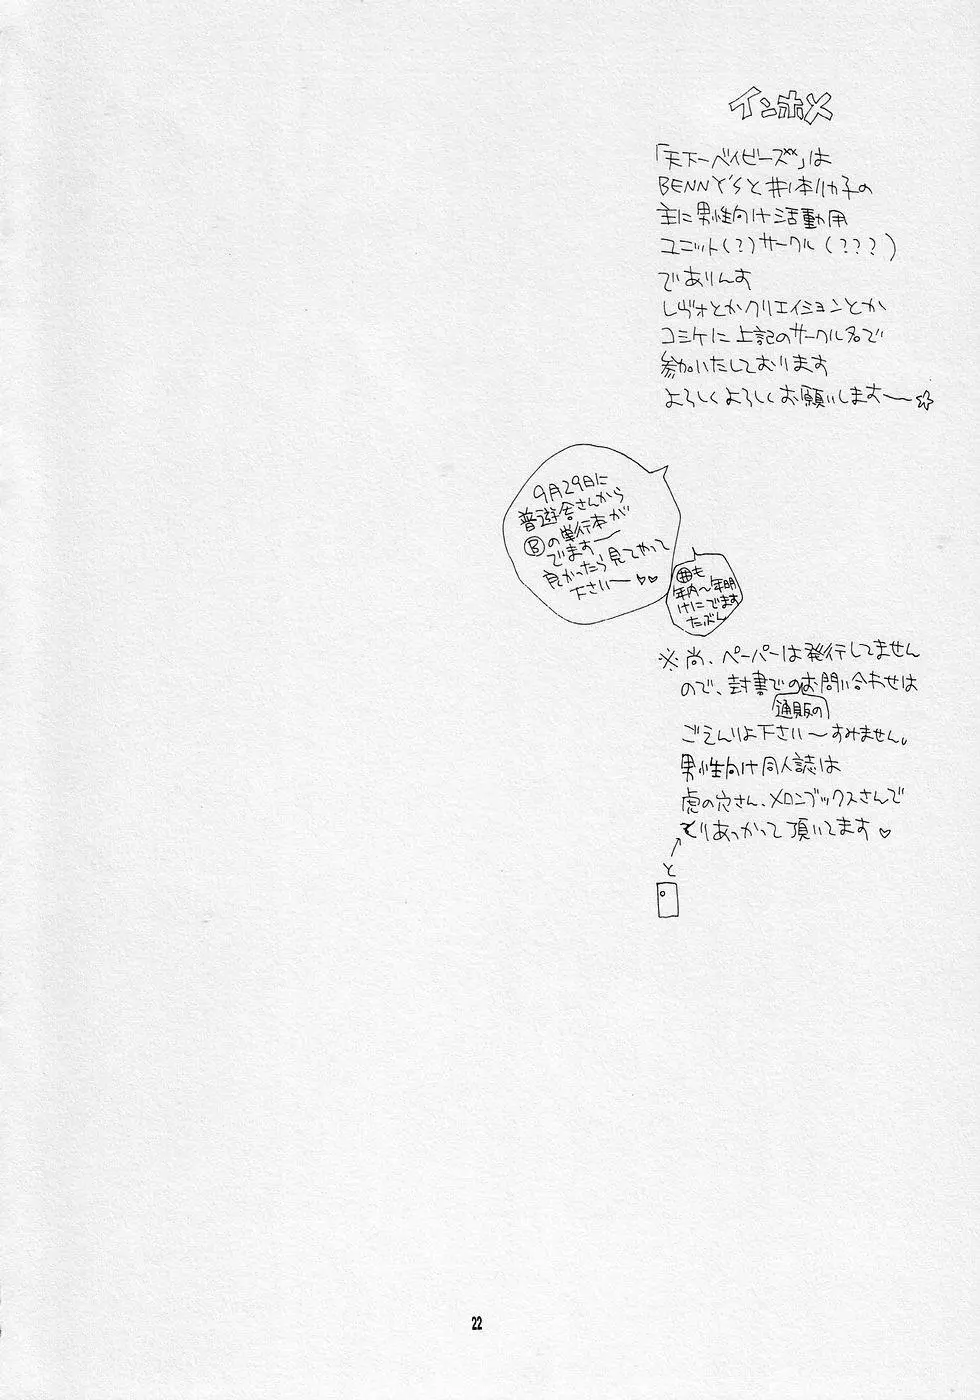 インホメ
「天下一ベイビーズ××」は
BENNY'Sと井本リカ子の
主に男性向け活動用
ユニット(?)サークル(???)
でありんす
レヴォとかクリエイションとか
コミケに上記のサークル名で
参加いたしております
よろしくよろしくお願いします〜☆
9月29日に
普遊舎さんから
Ⓑの単行本が
でます〜
良かったら見てやって
下さい〜♡♡
㊉も
年内〜年明
けにでます
たぶん
※尚、ペーパーは発行してません
ので、封書でのお問い合わせは
通販の
ごえんりょ下さい〜すみません。
男性向け同人誌は
虎の穴さん、メロンブックスさんで
とりあつかって頂いてます♡
と
22